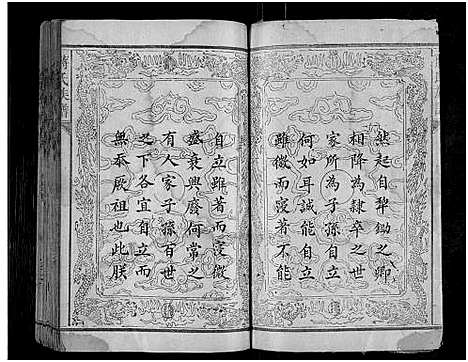 然起自犁鋤之卿
相降為隸卒之世
家所為子孫自立
何如耳誠能自立
雖微而寖著不能
自立雖著而寖微
盛衰興廢何常之
有人家子孫百世
之下各宜自立而
無忝厥祖也此朕
氏族譜